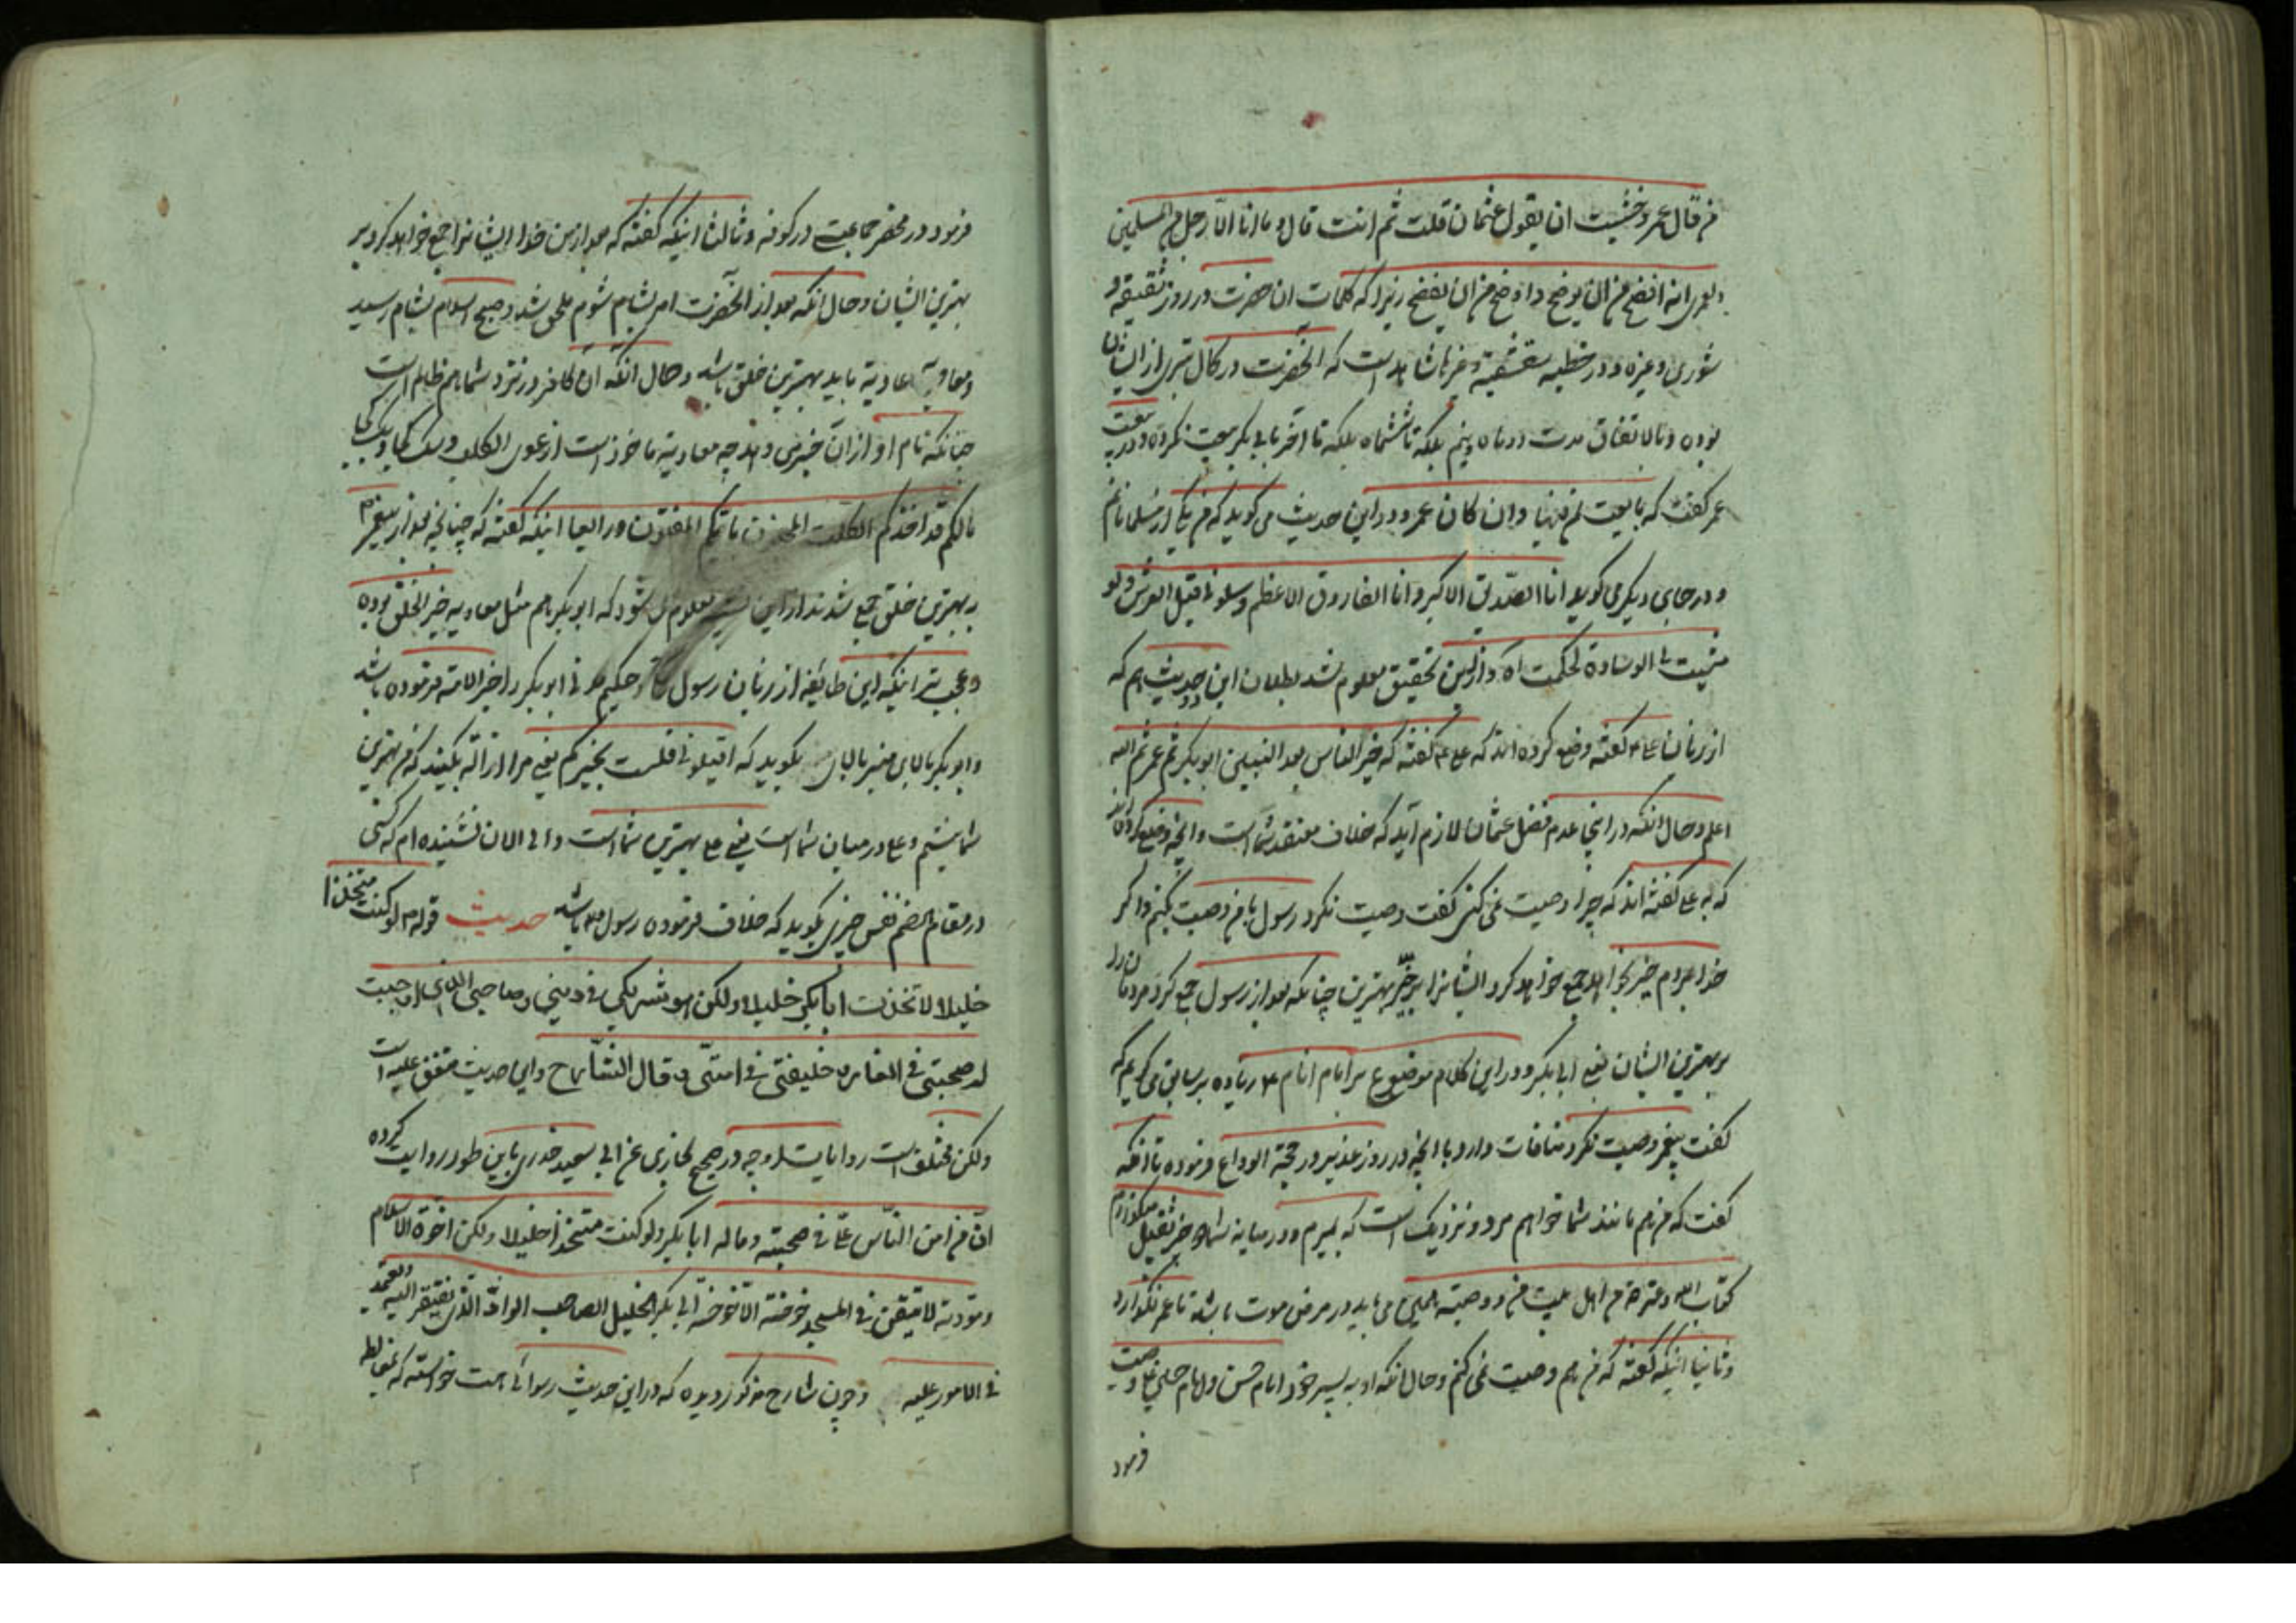 من قال عمر و خشیت ان یقول عثمان قلت ثم انت قال و ما انا الا رجل من المسلمین
لعمری انه افضح من ان یوضح و اوضح من ان یفضح زیرا که کلمات ان حضرت در روز ثقیفه و
شوری و غیره و در خطبه شقشقیه و غیرها شاهد است که آنحضرت در کمال تبری از ایشان
بوده و بالاتفاق مدت دو ماه و نیم بلکه تا ششماه بلکه تا آخر با ابی بکر بیعت نکرده و در بیعت
عمر کفت که بایعت و ان کان عمر و در این حدیث می کوید که من یکی از مسلمانانم
و در جای دیکر می کوید انا الصدیق الاکبر و انا الفاروق الاعظم و سلونی قبل العرش و لو
ثنیت لی الوسادة لحکمت اه و از این تحقیق معلوم شد بطلان این حدیث هم که
از زبان علی ۴ کفته وضع کرده اند که علی ۴ کفته که خیر الناس بعد النبیین ابوبکر ثم عمر ثم الله
اعلم و حال انکه در اینجا عدم فضل عثمان لازم آید که خلاف معتقد شما است و آنچه وضع کرده اند
که به علی کفته اند که چرا وصیت نمی کنی کفت وصیت نکرد رسول تا من وصیت کنم و اکر
خدا بمردم خیر خواهد جمع خواهد کرد ایشانرا بر خیر بهترین چنانکه بعد از رسول جمع کرد مردمان را
بر بهترین ایشان یعنی ابی بکر و در این کلام موضوع بر امام انام ۴ زیاده بر سابق می کویم که
کفت پیغمبر وصیت نکرد منافات دارد با آنچه در روز غدیر و در حجة الوداع فرموده تا آنکه
کفت که من هم مانند شما خواهم مرد و نزدیک است که بمیرم و در میانه شما دو چیز ثقیل میکذارم
کتاب الله و عترتی من اهل بیتی و وصیته می باید در مرض موت باشد تا عمر نکذارد
و ثانیا اینکه کفته که من هم وصیت نمی کنم و حال آنکه او به پسر خود امام حسن و امام حسین علی وصیت
فرمود
فرمود در محضر جماعت در کوفه و ثالثا اینکه کفته که بعد از من خدا ایشانرا جمع خواهد کرد بر
بهترین ایشان و حال آنکه بعد از آنحضرت امر بشام شوم ملحق شد و صبح اسلام بشام رسید
و معاویه عاویة باید بهترین خلق باشد و حال آنکه آن کافر در نزد شما هم ظالم است
چنانکه نام او از آن خبری دهد چه معاویة ماخوذ است از عوی الکلب و
مالکم قد اخذکم الکلب المفتون و رابعا اینکه کفته که چنانچه بعد از پیغمبر م
به بهترین خلق جمع شدند از این معلوم می شود که ابوبکر هم مثل معاویه خیر الخلق بوده
و عجب تر اینکه این طایفه از زبان رسول حکیم ابوبکر را خیر الامة فرموده باشد
و ابوبکر بالای منبر بکوید که اقیلونی فلست بخیرکم یعنی مرا ازاله بکنید که من بهترین
شما نیستم و علی در میان شما است یعنی علی بهترین شما است و الی الان نشنیده ام که کسی
در مقام هضم نفس چیزی بکوید که خلاف فرموده رسول م باشد حدیث قوله م لو کنت متخذا
خلیلا لاتخذت ابا بکر خلیلا ولکن هو شریکی فی دینی و صاحبی الذی اوجبت
له صحبتی فی الغار و خلیفتی فی امتی و قال الشارح و این حدیث متفق علیه است
ولکن مختلف است روایاتش چه در صحیح بخاری عن ابی سعید خدری باین طور روایت کرده
ان من امن الناس علی فی صحبته و ماله ابا بکر و لو کنت متخذا خلیلا ولکن اخوة الاسلام
و مودته لا تبقین فی المسجد خوخة الا خوخة ابی بکر الخلیل الصاحب الواد الذی یفتقر الیه و یعتمد
فی الامور علیه و چون شارح مذکور دیده که در این حدیث رسوائی است خواسته که بمغالطه